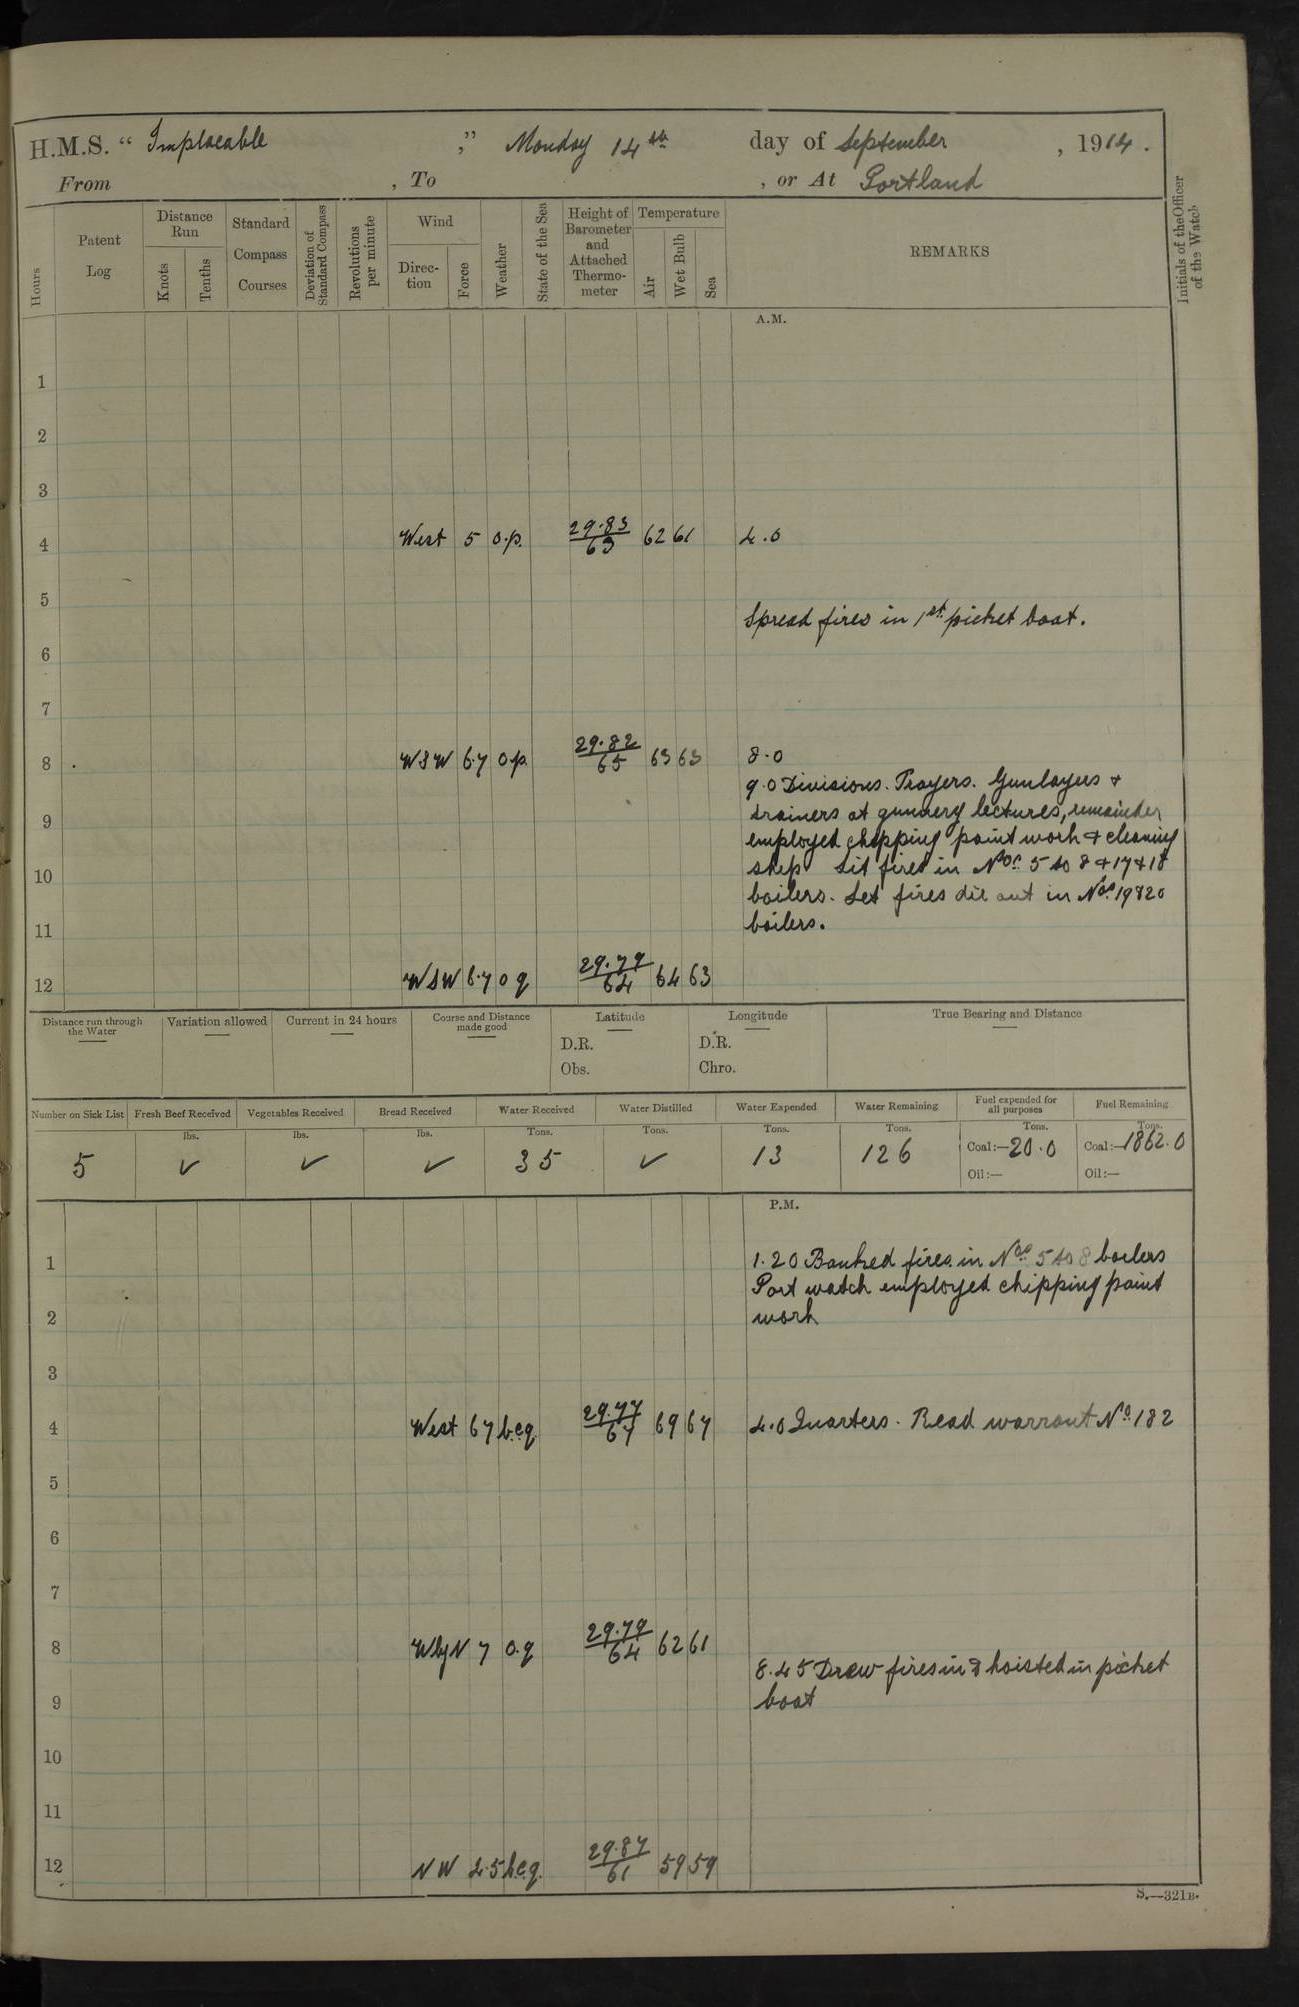 H.M.S. " Implacable ," Monday 14th day of September , 1914.
From , To , or At Portland
Hours
Patent Log
Distance Run
Knots
Tenths
Standard Compass Courses
Deviation of Standard Compass
Revolutions per minute
Wind
Direc-tion
Force
Weather
State of the Sea
Height of Barometer and Attached Thermo-meter
Temperature
Air
Wet Bulb
Sea
REMARKS
Initials of the Officer of the Watch
A.M.
1
2
3
4 West 5 o.p. 29.83 63 62 61 4.0
5
Spread fires in 1st picket boat.
6
7
8 WSW 6.7 o.p. 29.82 65 63 63 8.0
9.0 Divisions. Prayers. Gunlayers &
trainers at gunnery lectures, remainder
9
employed chipping paint work & cleaning
ship Lit fires in Nos. 5 to 8 & 17 & 18
10
boilers. Let fires die out in Nos. 19 & 20
boilers.
11
12 WSW 6.7 o q 29.79 64 64 63
Distance run through the Water
Variation allowed
Current in 24 hours
Course and Distance made good
Latitude
D.R.
Obs.
Longitude
D.R.
Chro.
True Bearing and Distance
Number on Sick List
Fresh Beef Received
Vegetables Received
Bread Received
Water Received
Water Distilled
Water Expended
Water Remaining
Fuel expended for all purposes
Fuel Remaining
lbs. lbs. lbs. Tons. Tons. Tons. Tons. Tons. Tons.
5 ✓ ✓ ✓ 35 ✓ 13 126 Coal:—20.0 Coal:—1862.0
Oil:— Oil:—
P.M.
1 1.20 Banked fires in Nos 5 to 8 boilers
Port watch employed chipping paint
2 work
3
4 West 6 7 b.c.q. 29.77 67 69 67 4.0 Quarters. Read warrant No. 182
5
6
7
8 WbyN 7 o.q 29.79 64 62 61
8.45 Drew fires in & hoisted in picket
9 boat
10
11
12 NW 4.5 b.c.q. 29.87 61 59 59
S.—321B.